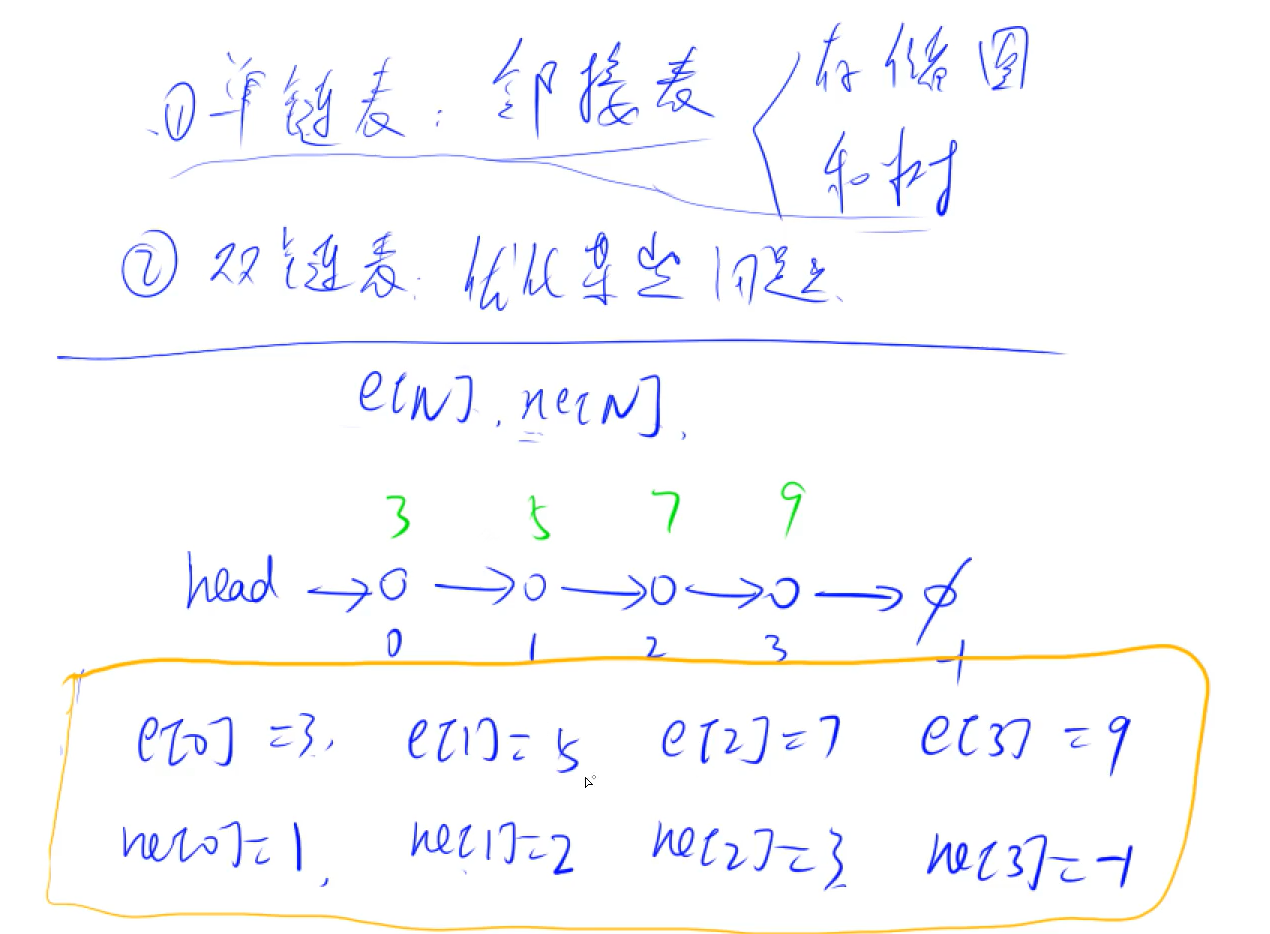 ① 单链表：邻接表 存储图
和树
② 双链表：优化某些问题
e[N], ne[N],
3 5 7 9
head → O → O → O → O → ∅
0 1 2 3 -1
e[0]=3, e[1]=5 e[2]=7 e[3]=9
ne[0]=1, ne[1]=2 ne[2]=3 ne[3]=-1